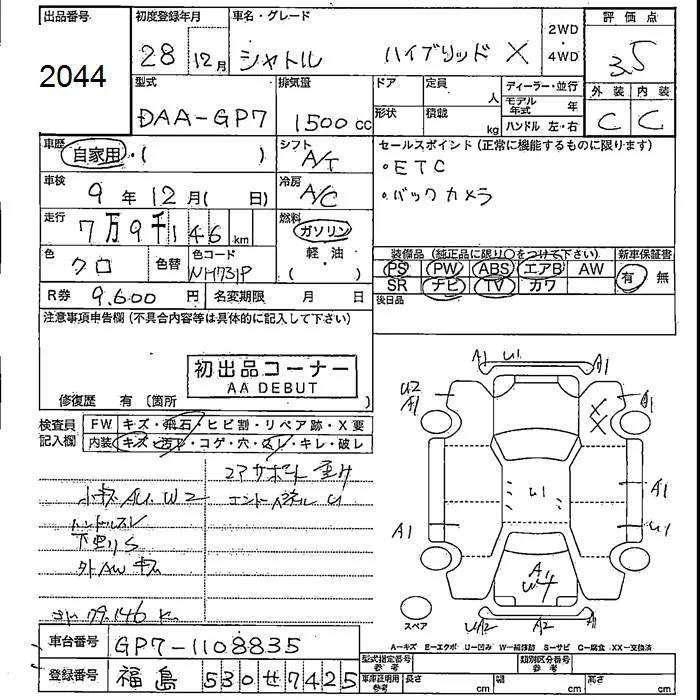 出品番号 初度登録年月 車名・グレード 2WD・4WD 評価点
2044 28 12月 シャトル ハイブリッド X 3.5
型式 排気量 ドア 定員 人 ディーラー・並行 外装 内装
DAA-GP7 1500cc 形状 積載 kg モデル年式 年 C C
ハンドル 左・右
車歴 自家用・( ) シフト A/T セールスポイント (正常に機能するものに限ります)
・ETC
車検 9年12月( 日) 冷房 A/C ・バックカメラ
走行 7万9千146km 燃料 ガソリン
軽・油
( )
色 クロ 色替 色コード NH731P
装備品 (純正品に限り〇をつけて下さい) 新車保証書
PS PW ABS エアB AW 有 無
SR ナビ TV カワ
R券 9,600円 名変期限 月 日 後日品
注意事項申告欄 (不具合内容等は具体的に記入して下さい)
初出品コーナー
AA DEBUT
修復歴 有 〔箇所 〕
検査員記入欄 FW キズ・飛石・ヒビ割・リペア跡・X要
内装 キズ・汚れ・コゲ・穴・スレ・キレ・破レ
コアサポート
小キズ AU. W2
ハンドルスレ
下回りS
外AWキズ
79,146 K
A1 U1 A1
U2 A1 A1
U1 A1
A1 U1
A1
W4
スペア U1/2 A2 A1
A=キズ E=エクボ U=凹み W=補修跡 S=サビ C=腐食 XX=交換済
車台番号 GP7-1108835
登録番号 福島 530 せ 7425
型式指定番号 参考 類別区分番号 参考
車庫証明用 参考 長さ cm 幅 cm 高さ cm